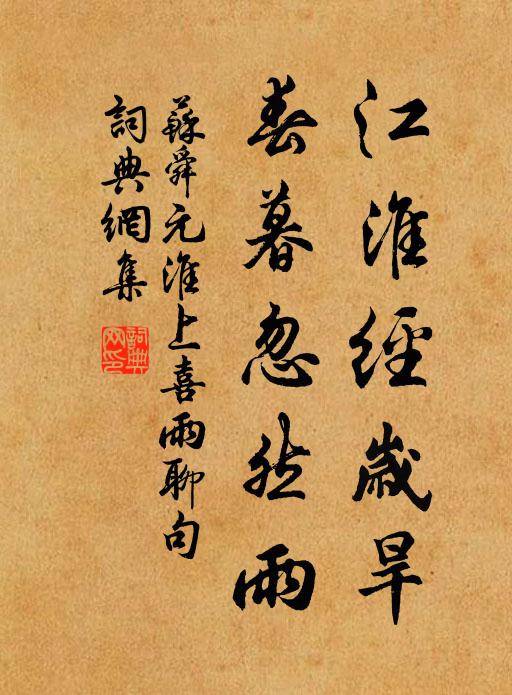 江淮經歲旱
春暮忽然雨
蘇舜元淮上喜雨聊句
詞典網集
詞典网印